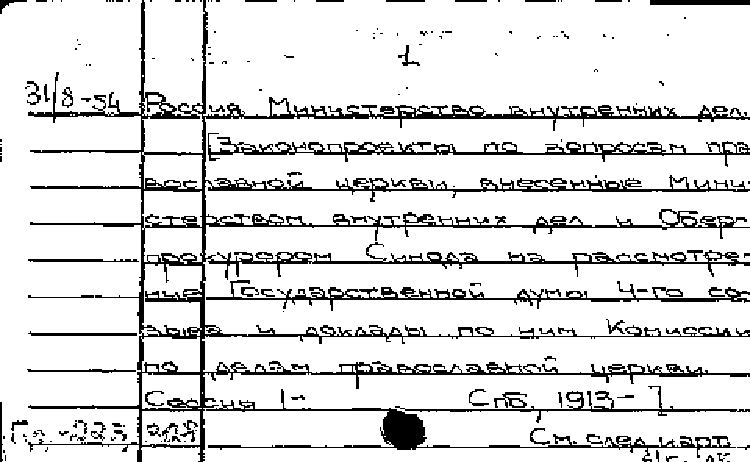 1
31/8-54 Россия Министерство внутренних дел.
[Законопроекты по вопросам пра
вославной церкви, внесенные Мини
стерством внутренних дел и Обер-
прокурором Синода на рассмотре
ние Государственной думы 4-го со
зыва и доклады по ним Комиссии
по делам православной церкви.
Сессия 1- Спб, 1913- ].
См. след. карт.